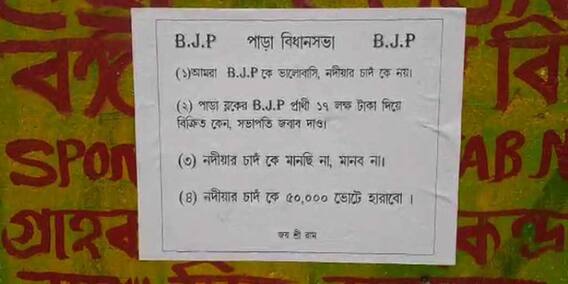 B.J.P পাড়া বিধানসভা B.J.P
(১)আমরা B.J.P কে ভালোবাসি, নদীয়ার চাঁদ কে নয়।
(২) পাড়া ব্লকের B.J.P প্রার্থী ১৭ লক্ষ টাকা দিয়ে
বিক্রিত কেন, সভাপতি জবাব দাও।
(৩) নদীয়ার চাঁদ কে মানছি না, মানব না।
(৪) নদীয়ার চাঁদ কে ৫০,০০০ ভোটে হারাবো ।
জয় শ্রী রাম
SPON
গ্রাহক